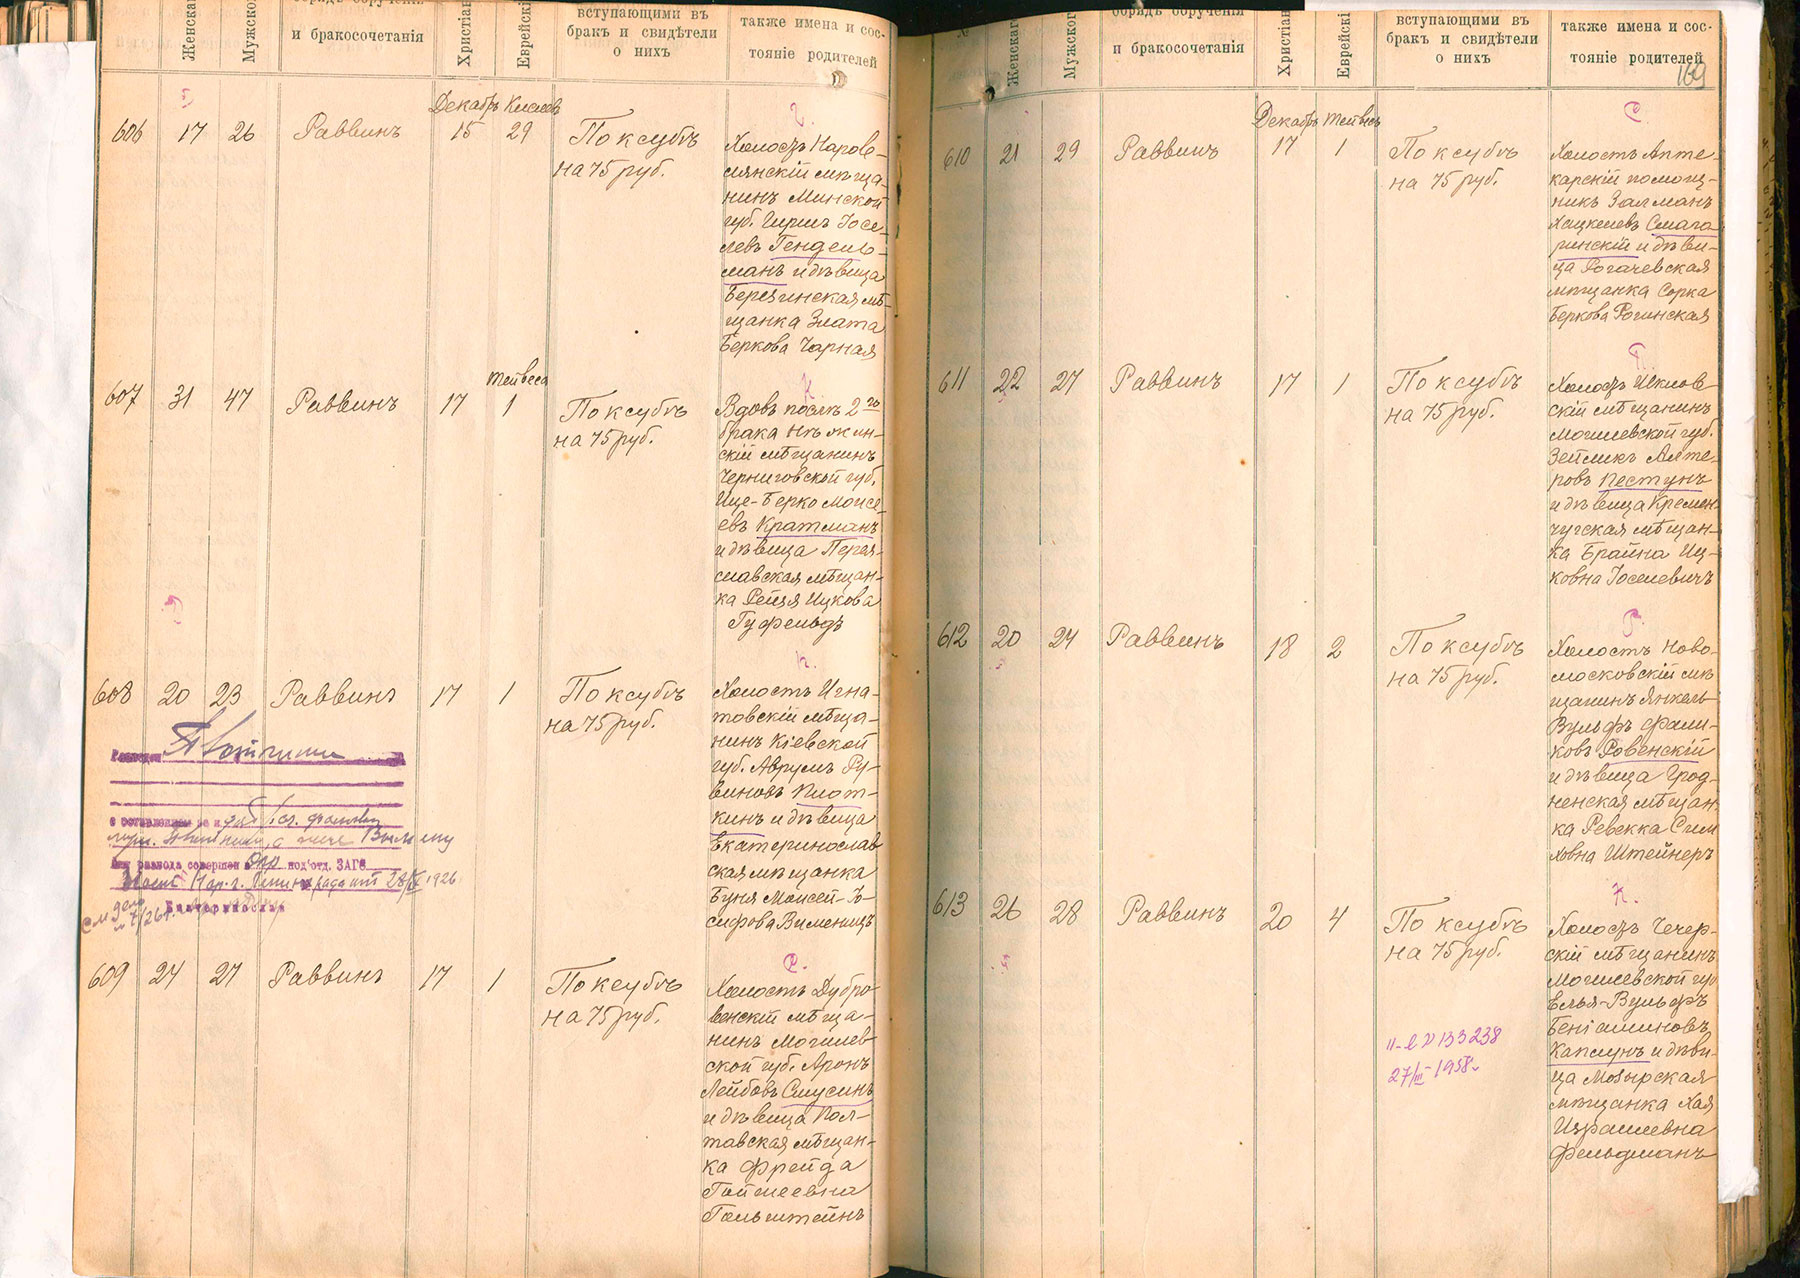 Женскаг
Мужског
обрядъ обрученія
и бракосочетанія
Христіан
Еврейскі
вступающими въ
бракъ и свидѣтели
о нихъ
также имена и сос-
тояніе родителей
Декабр Кислев
606 17 26 Раввинъ 15 29 По ксубѣ
на 75 руб.
Холостъ Наров-
лянскій мѣща-
нинъ Минской
губ. Гиршъ Іосе-
левъ Гендель-
манъ и дѣвица
Березинская мѣ-
щанка Злата
Беркова Чарная
Тейвеса
607 31 47 Раввинъ 17 1 По ксубѣ
на 75 руб.
Вдовъ послѣ 2го
брака Нѣжин-
скій мѣщанинъ
Черниговской губ.
Ице-Берко Моисе-
евъ Кратманъ
и дѣвица Перея-
славская мѣщан-
ка Рейзя Ицкова
Гуфельдъ
608 20 23 Раввинъ 17 1 По ксубѣ
на 75 руб.
Холостъ Игна-
товскій мѣща-
нинъ Кіевской
губ. Аврумъ Ру-
виновъ Плот-
кинъ и дѣвица
Екатеринослав
ская мѣщанка
Буня Моисей-Іо-
сифова Виленицъ
с оставлением
Акт развода совершен в Окр под'отд. ЗАГС
28/IV 1926
609 24 27 Раввинъ 17 1 По ксубѣ
на 75 руб.
Холостъ Дубро-
венскій мѣща-
нинъ Могилев-
ской губ. Аронъ
Лейбовъ Слусинъ
и дѣвица Пол-
тавская мѣщан-
ка Фрейда
Гольштейнъ
Женскаго
Мужского
обрядъ обрученія
и бракосочетанія
Христіан
Еврейскі
вступающими въ
бракъ и свидѣтели
о нихъ
также имена и сос-
тояніе родителей
169
Декабрь Тейвесъ
610 21 29 Раввинъ 17 1 По ксубѣ
на 75 руб.
Холостъ Апте-
карскій помощ-
никъ Залманъ
Хацкелевъ Смага-
ринскій и дѣви-
ца Рогачевская
мѣщанка Сорка
Беркова Рогинская
611 22 27 Раввинъ 17 1 По ксубѣ
на 75 руб.
Холостъ Шклов-
скій мѣщанинъ
Могилевской губ.
Зейликъ Алте-
ровъ Пестунъ
и дѣвица Кремен-
чугская мѣщан-
ка Брайна Иц-
ковна Іоселевичъ
612 20 24 Раввинъ 18 2 По ксубѣ
на 75 руб.
Холостъ Ново-
московскій мѣ
щанинъ Янкель-
Вульфъ Фали-
ковъ Ровенскій
и дѣвица Грод-
ненская мѣщан
ка Ревекка Сим
ховна Штейнеръ
613 26 28 Раввинъ 20 4 По ксубѣ
на 75 руб.
Холостъ Чечер-
скій мѣщанинъ
Могилевской губ
Елья-Вульфъ
Беніаминовъ
Каплунъ и дѣви-
ца Мозырская
мѣщанка Хая
Израилевна
Фельдманъ
133238
27/III-1958